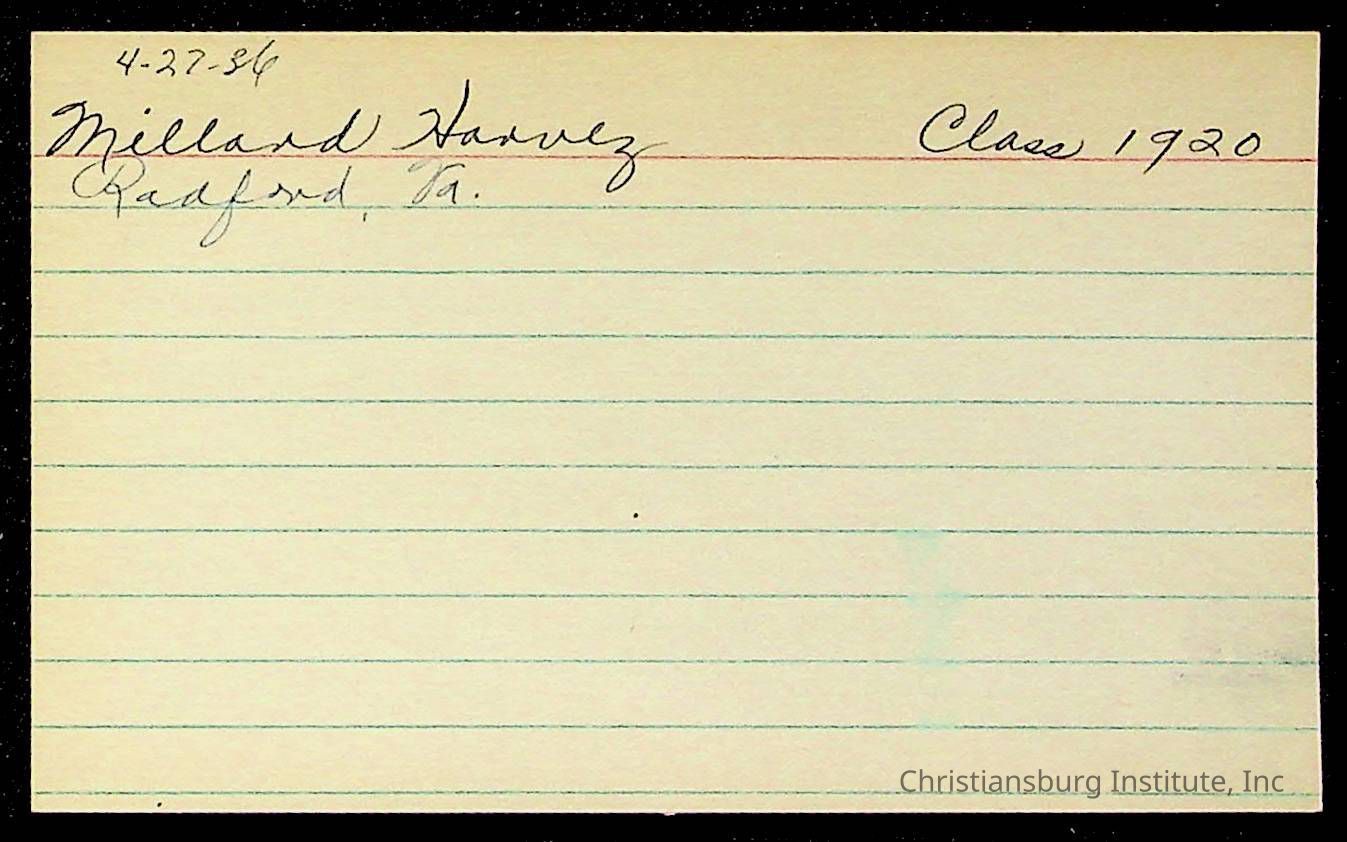 4-27-36
Millard Harvey Class 1920
Radford, Va.
Christiansburg Institute, Inc